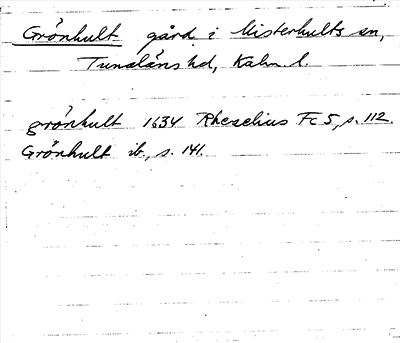 Grönhult gård i Misterhults sn,
Tunaläns hd, Kalm l.
grönhult 1634 Rhezelius Fc 5, s. 112.
Grönhult ib., s. 141.